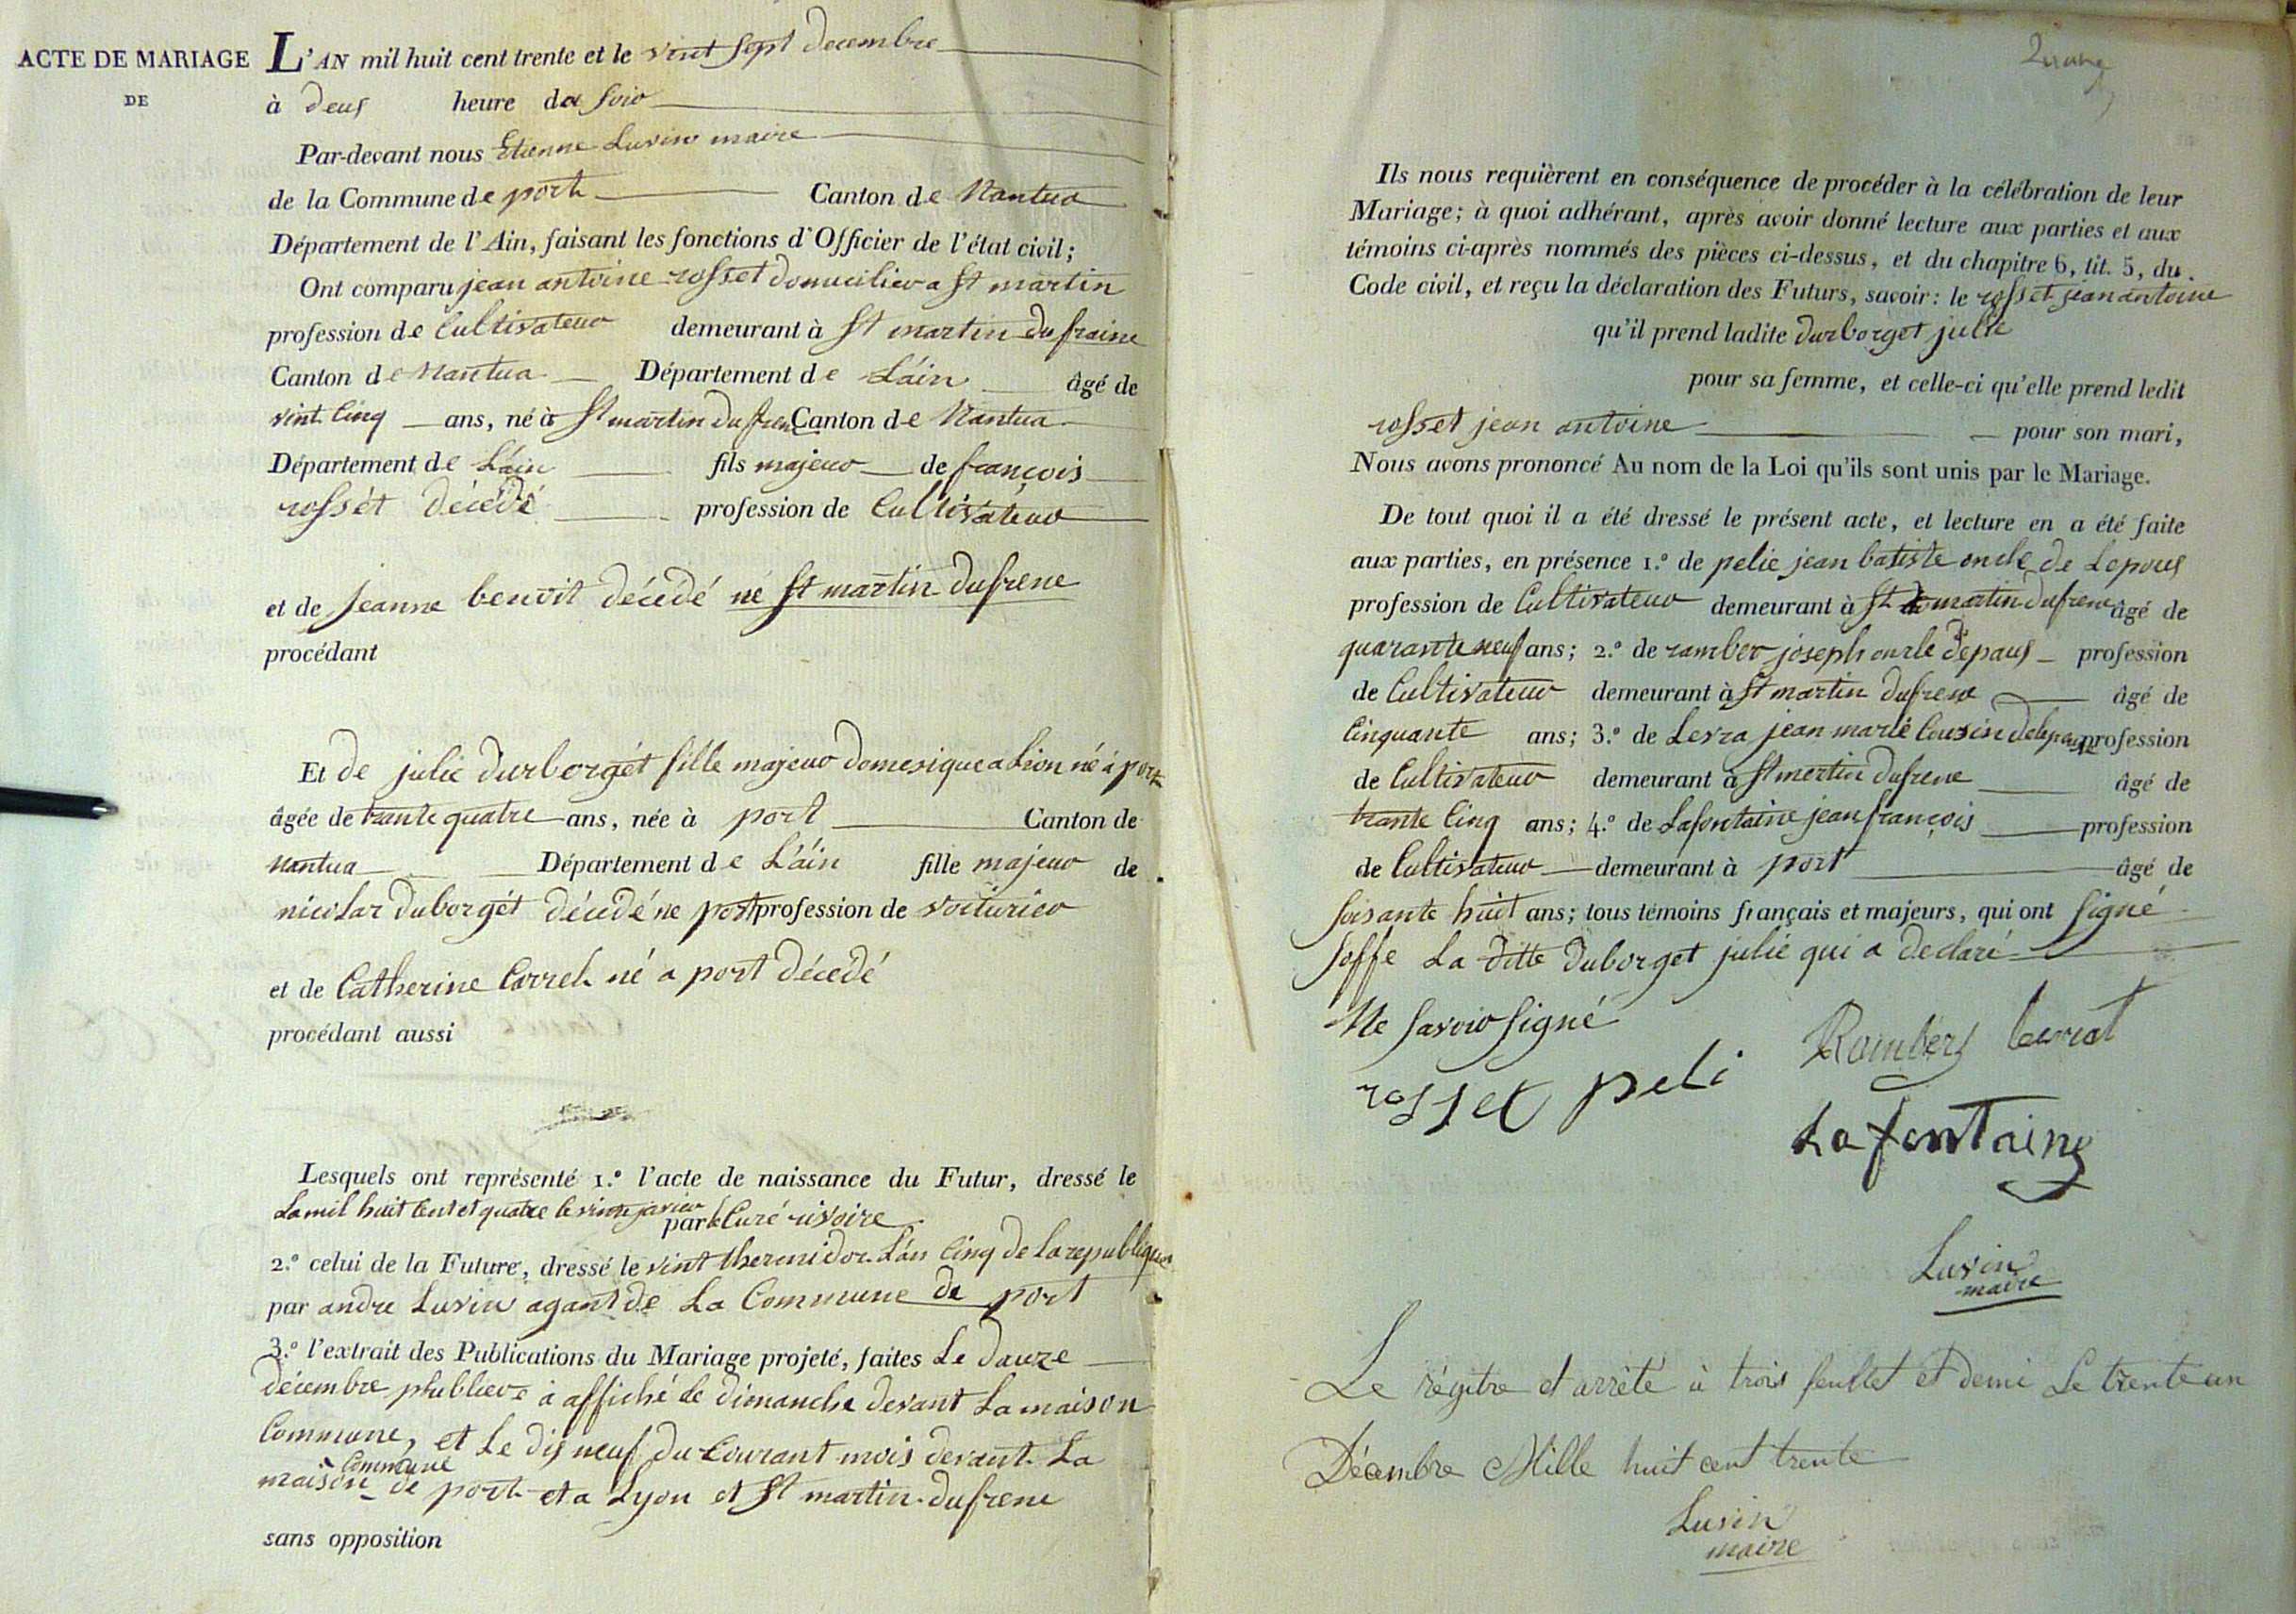 ACTE DE MARIAGE
DE
L'AN mil huit cent trente et le vint sept decembre
à deus heure du soir
Par-devant nous Etienne Lusin maire
de la Commune de port Canton de Nantua
Département de l'Ain, faisant les fonctions d'Officier de l'état civil;
Ont comparu jean antoine rosset domicilier a St martin
profession de Cultivateur demeurant à St martin du fraine
Canton de Nantua Département de L'ain âgé de
vint cinq ans, né à St martin du fren Canton de Nantua
Département de L'ain fils majeur de françois
rosset décédé profession de Cultivateur
et de jeanne benoit décédé né St martin dufrene
procédant
Et de julie durborgét fille majeur domesique a Lion né à port
âgée de trante quatre ans, née à port Canton de
Nantua Département de L'ain fille majeur de
nicolar duborgét décédé ne port profession de voiturier
et de Catherine Correl né a port décédé
procédant aussi
Lesquels ont représenté 1.º l'acte de naissance du Futur, dressé le
La mil huit cent et quatre le par le Curé rivoire
2.º celui de la Future, dressé le vint thermidor L'an cinq de la republique
par andre Lusin agant de La Commune de port
3.º l'extrait des Publications du Mariage projeté, faites Le douze
décembre phublier à affiché le dimanche devant La maison
Commune, et Le dis neuf du Courant mois devant La
maison Commune de port et a Lyon et St martin dufrene
sans opposition
Ils nous requièrent en conséquence de procéder à la célébration de leur
Mariage; à quoi adhérant, après avoir donné lecture aux parties et aux
témoins ci-après nommés des pièces ci-dessus, et du chapitre 6, tit. 5, du
Code civil, et reçu la déclaration des Futurs, savoir: le rosset jean antoine
qu'il prend ladite durborget julie
pour sa femme, et celle-ci qu'elle prend ledit
rosset jean antoine pour son mari,
Nous avons prononcé Au nom de la Loi qu'ils sont unis par le Mariage.
De tout quoi il a été dressé le présent acte, et lecture en a été faite
aux parties, en présence 1.º de pelie jean batiste oncle de Lepous
profession de Cultivateur demeurant à St martin dufrene âgé de
quarante neuf ans; 2.º de ramber joseph oncle depous profession
de Cultivateur demeurant à St martin dufrene âgé de
Cinquante ans; 3.º de Levra jean marie Cousin delepous profession
de Cultivateur demeurant à St mertin dufrene âgé de
trante Cinq ans; 4.º de Lafontaine jean françois profession
de Cultivateur demeurant à port âgé de
soisante huit ans; tous témoins français et majeurs, qui ont signé
soffe La ditte duborget julie qui a declaré
Ne savoir signé
Rambert Levrat
rosset peli
La fontaine
Lusin
maire
Le régitre et arrêté à trois feullet et demi Le trente un
Décembre Mille huit cent trente
Lusin
maire